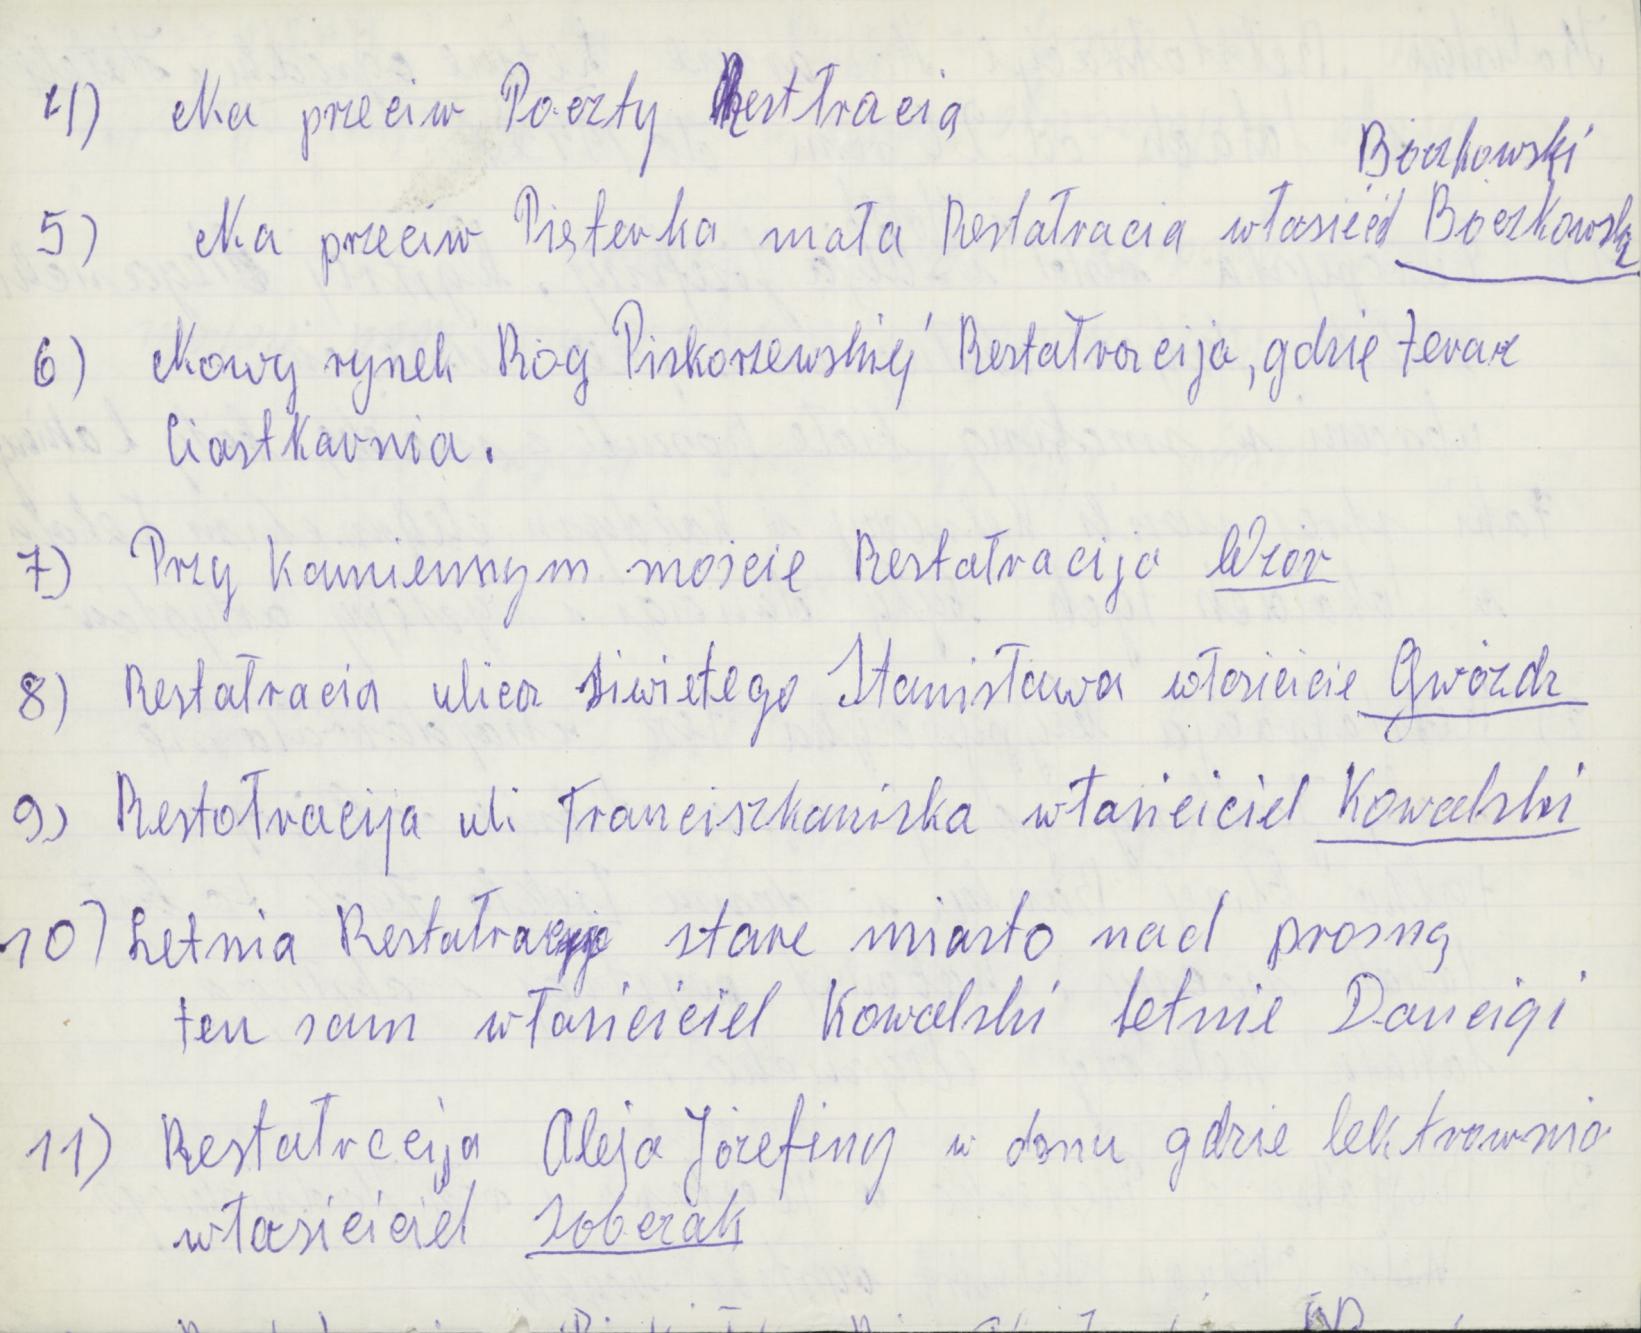 4) Na przeciw Poczty Resttracia
Boczkowski
5) Na przeciw Pięterka mała Restatracia własicid Boczkowski
6) Nowy rynek Rog Piskorzewskiej Restatracija, gdzię teraz
Ciastkarnia.
7) Przy Kamiennym mościę Restatracija Wzór
8) Restatracia ulica Siwietego Stanisława własicicie Gwóżdz
9) Restotracija uli Franciszkaniska własiciciel Kowalski
10) Letnia Restatracija stare miasto nad prosną
ten sam własiciciel Kowalski letnie Dancigi
11) Restatrccija Aleja Józefiny w domu gdzie lektrownia
własiciciel Sobczak